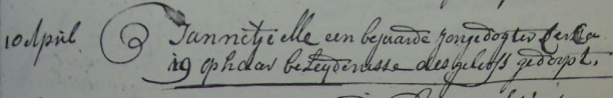 10 April Jannitji Elle een bejaarde jongedogter
is op haar beleydenisse des geloofs gedoopt.